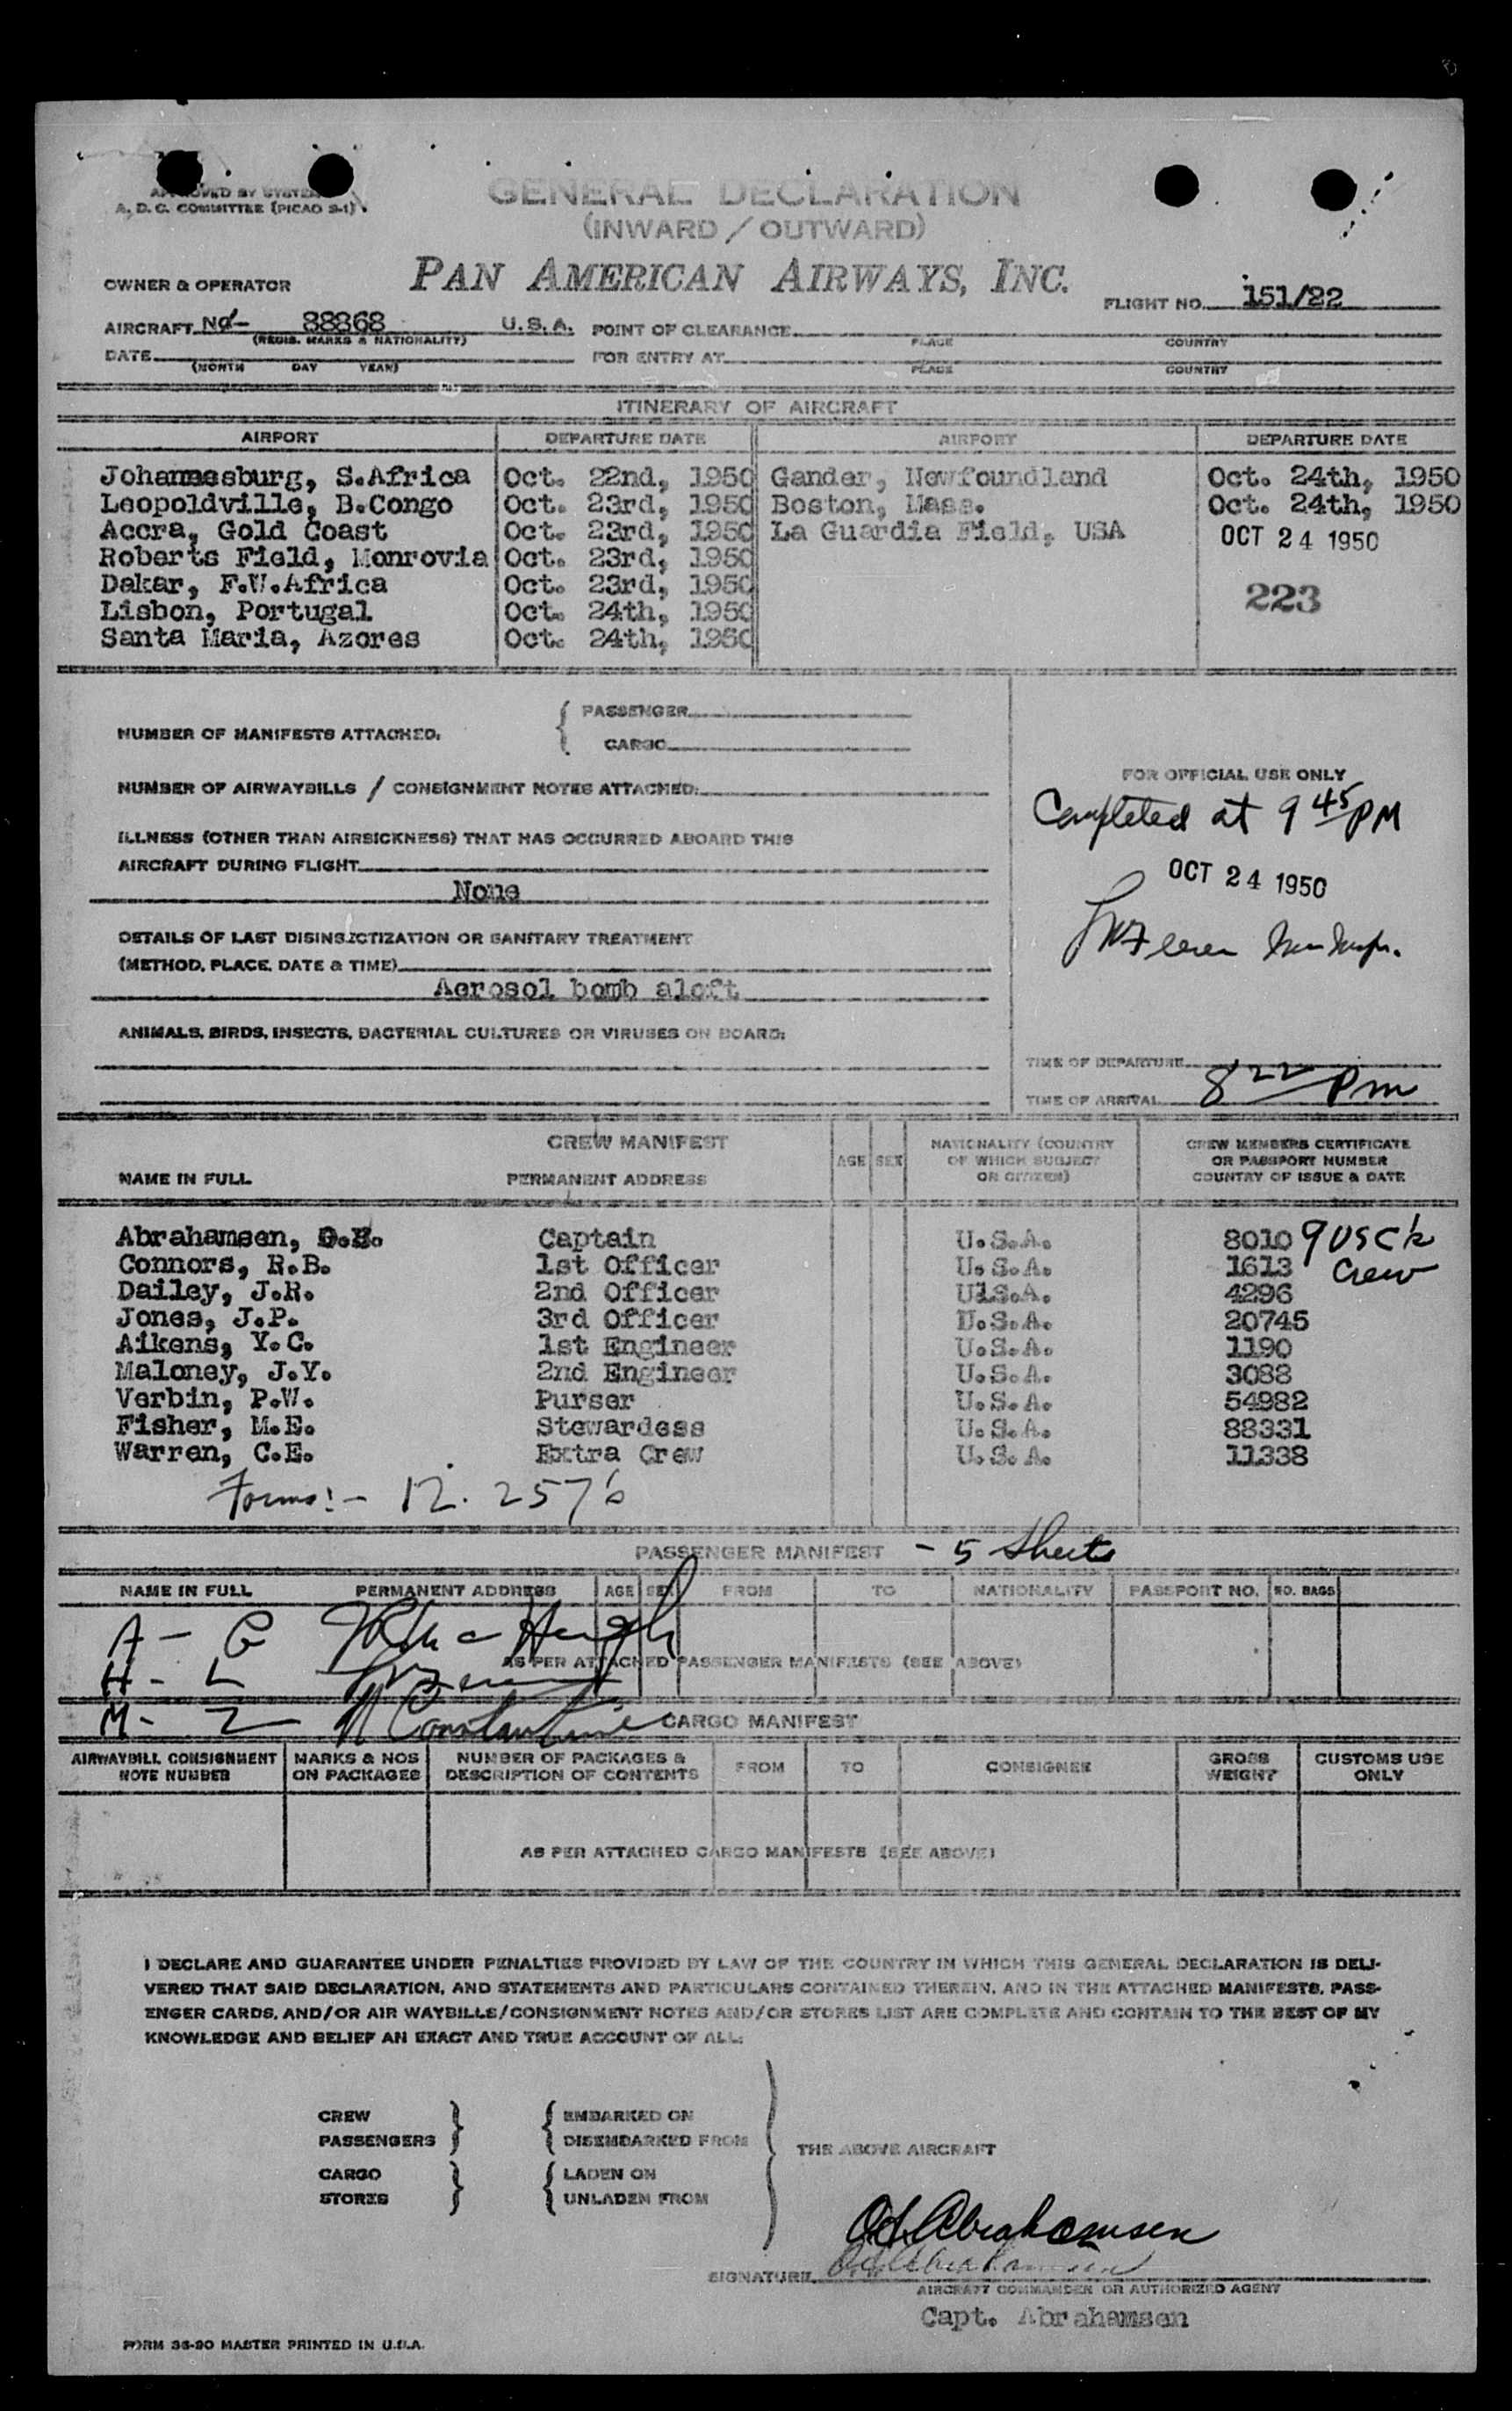 APPROVED BY SYSTEM
A. D. C. COMMITTEE (PICAO 2-1)
GENERAL DECLARATION
(INWARD / OUTWARD)
OWNER & OPERATOR PAN AMERICAN AIRWAYS, INC. FLIGHT NO. 151/22
AIRCRAFT 88868 U.S.A. POINT OF CLEARANCE
(REGIS. MARKS & NATIONALITY) PLACE COUNTRY
DATE FOR ENTRY AT
(MONTH DAY YEAR) PLACE COUNTRY
ITINERARY OF AIRCRAFT
AIRPORT DEPARTURE DATE AIRPORT DEPARTURE DATE
Johannesburg, S.Africa Oct. 22nd, 1950 Gander, Newfoundland Oct. 24th, 1950
Leopoldville, B.Congo Oct. 23rd, 1950 Boston, Mass. Oct. 24th, 1950
Accra, Gold Coast Oct. 23rd, 1950 La Guardia Field, USA OCT 24 1950
Roberts Field, Monrovia Oct. 23rd, 1950
Dakar, F.W.Africa Oct. 23rd, 1950 223
Lisbon, Portugal Oct. 24th, 1950
Santa Maria, Azores Oct. 24th, 1950
NUMBER OF MANIFESTS ATTACHED. PASSENGER
CARGO
NUMBER OF AIRWAYBILLS / CONSIGNMENT NOTES ATTACHED:
ILLNESS (OTHER THAN AIRSICKNESS) THAT HAS OCCURRED ABOARD THIS
AIRCRAFT DURING FLIGHT
None
DETAILS OF LAST DISINSECTIZATION OR SANITARY TREATMENT
(METHOD, PLACE, DATE & TIME)
Aerosol bomb aloft
ANIMALS, BIRDS, INSECTS, BACTERIAL CULTURES OR VIRUSES ON BOARD:
FOR OFFICIAL USE ONLY
Completed at 9 45 PM
OCT 24 1950
TIME OF DEPARTURE
TIME OF ARRIVAL 8 22 Pm
CREW MANIFEST AGE SEX NATIONALITY (COUNTRY CREW MEMBERS CERTIFICATE
OF WHICH SUBJECT OR PASSPORT NUMBER
NAME IN FULL PERMANENT ADDRESS OR CITIZEN) COUNTRY OF ISSUE & DATE
Abrahamsen, Captain U.S.A. 8010 9 USC
Connors, R.B. 1st Officer U.S.A. 1613 Crew
Dailey, J.R. 2nd Officer U.S.A. 4296
Jones, J.P. 3rd Officer U.S.A. 20745
Aikens, Y.C. 1st Engineer U.S.A. 1190
Maloney, J.Y. 2nd Engineer U.S.A. 3088
Verbin, P.W. Purser U.S.A. 54982
Fisher, M.E. Stewardess U.S.A. 88331
Warren, C.E. Extra Crew U.S.A. 11338
Forms:- 12. 257's
PASSENGER MANIFEST - 5 Sheets
NAME IN FULL PERMANENT ADDRESS AGE SEX FROM TO NATIONALITY PASSPORT NO. NO. BAGS
A - G
AS PER ATTACHED PASSENGER MANIFESTS (SEE ABOVE)
H - L
M - Z N Constantine
CARGO MANIFEST
AIRWAYBILL CONSIGNMENT MARKS & NOS NUMBER OF PACKAGES & FROM TO CONSIGNEE GROSS CUSTOMS USE
NOTE NUMBER ON PACKAGES DESCRIPTION OF CONTENTS WEIGHT ONLY
AS PER ATTACHED CARGO MANIFESTS (SEE ABOVE)
I DECLARE AND GUARANTEE UNDER PENALTIES PROVIDED BY LAW OF THE COUNTRY IN WHICH THIS GENERAL DECLARATION IS DELI-
VERED THAT SAID DECLARATION, AND STATEMENTS AND PARTICULARS CONTAINED THEREIN, AND IN THE ATTACHED MANIFESTS, PASS-
ENGER CARDS, AND/OR AIR WAYBILLS/CONSIGNMENT NOTES AND/OR STORES LIST ARE COMPLETE AND CONTAIN TO THE BEST OF MY
KNOWLEDGE AND BELIEF AN EXACT AND TRUE ACCOUNT OF ALL:
CREW EMBARKED ON
PASSENGERS DISEMBARKED FROM
THE ABOVE AIRCRAFT
CARGO LADEN ON
STORES UNLADEN FROM
Abrahamsen
SIGNATURE Abrahamsen
AIRCRAFT COMMANDER OR AUTHORIZED AGENT
Capt. Abrahamsen
FORM 36-90 MASTER PRINTED IN U.S.A.